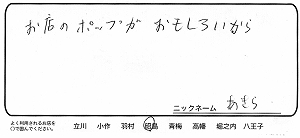 お店のポップが おもしろいから
ニックネーム あきら
よく利用されるお店を
○で囲んでください。 立川 小作 羽村 昭島 青梅 高幡 堀之内 八王子